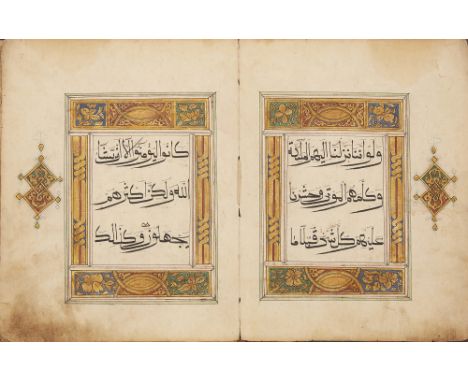 ولو اننا نزلنا اليهم الملئكة
وكلمهم الموتى وحشرنا
عليهم كل شى قبلا ما
كانوا ليومنوا الا ان يشا
الله ولكن اكثرهم
يجهلون وكذلك